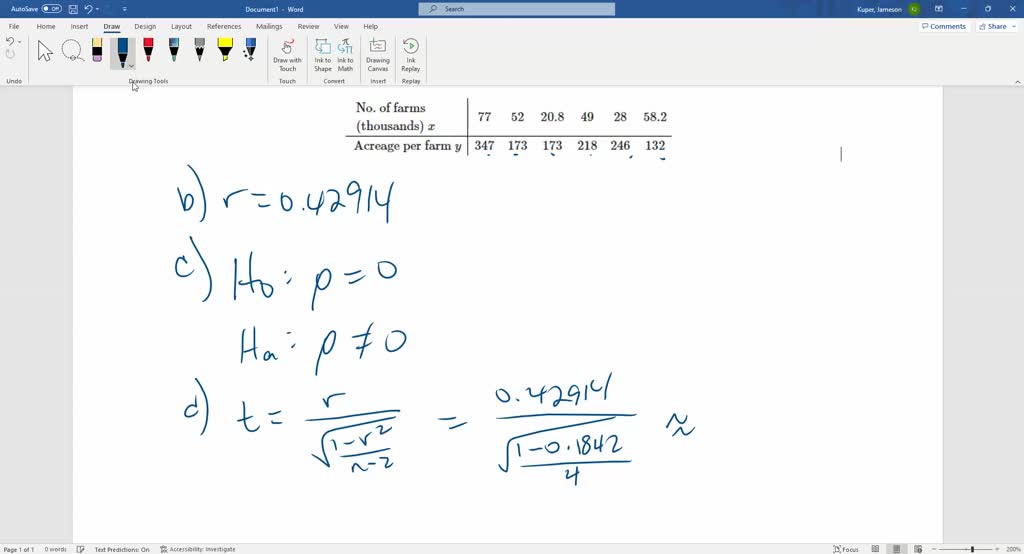 AutoSave Off Document1 - Word Search Kuper, Jameson
File Home Insert Draw Design Layout References Mailings Review View Help Comments Share
Undo
Draw with Touch
Ink to Shape
Ink to Math
Drawing Canvas
Ink Replay
Drawing Tools Touch Convert Insert Replay
No. of farms (thousands) x 77 52 20.8 49 28 58.2
Acreage per farm y 347 173 173 218 246 132
b) r = 0.42914
c) H₀: ρ = 0
Hₐ: ρ ≠ 0
d) t = r / √((1-r²)/(n-2)) = 0.42914 / √((1-0.1842)/4) ≈
Page 1 of 1 0 words Text Predictions: On Accessibility: Investigate Focus 200%